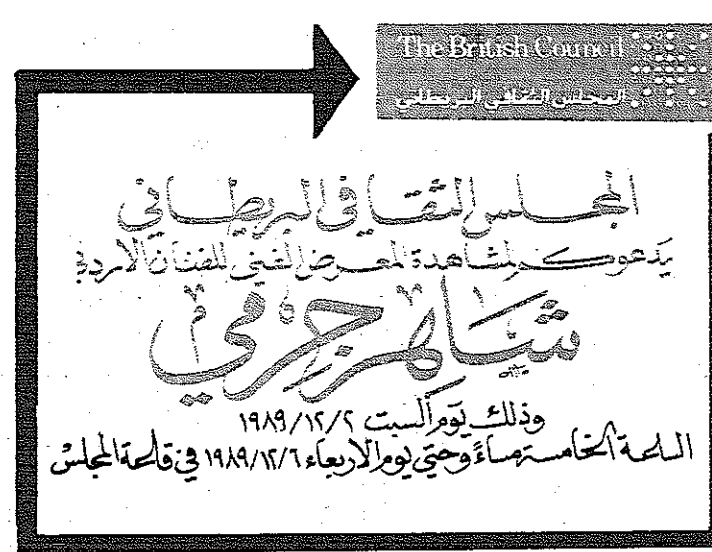 The British Council
المجلس الثقافي البريطاني
المجلس الثقافي البريطاني
يدعوكم لمشاهدة المعرض الفني للفنان الاردني
شاهر
وذلك يوم السبت ١٩٨٩/١٢/٢
الساعة الخامسة مساءً وحتى يوم الاربعاء ١٩٨٩/١٢/٦ في قاعة المجلس